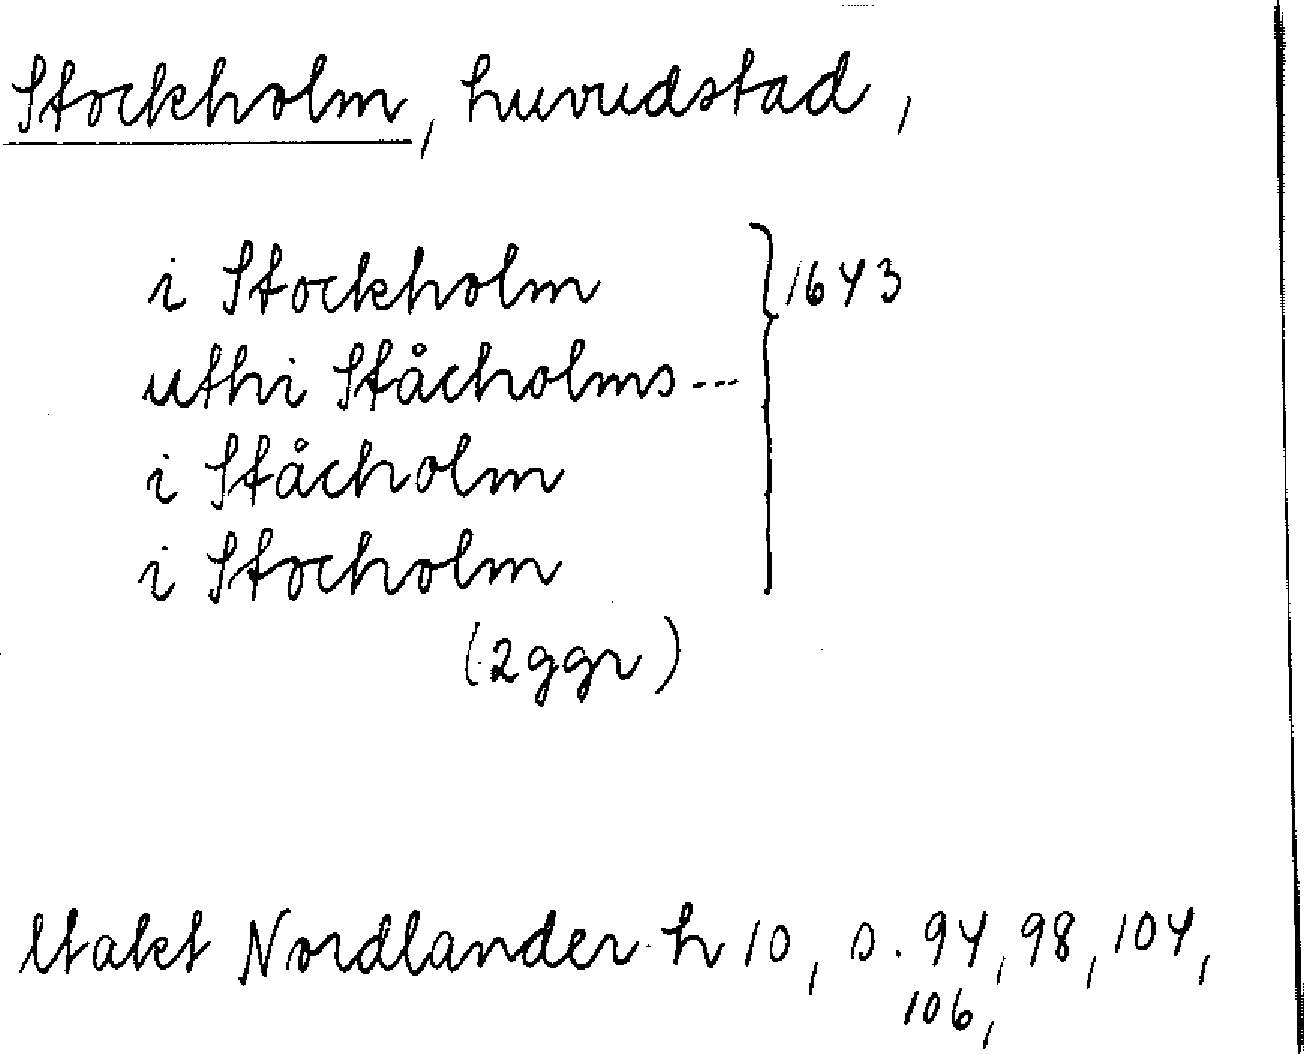 Stockholm, huvudstad,
i Stockholm } 1643
uthi Ståcholms ---
i Ståcholm
i Stocholm
(2ggr)
Nordlander h 10, s. 94, 98, 104,
106,